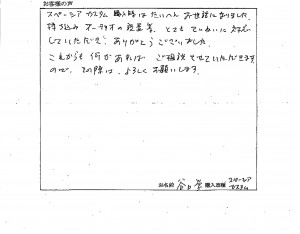 お客様の声
スペーシア カスタム 購入時は たいへん お世話になりました。
持ち込み オーディオの 設置等、とても ていねいに 対応
していただき、ありがとう ございました。
これからも 何か あれば ご相談 させていただきます
ので、その際は、よろしく お願いします。
お名前 谷口 学 購入車種 スペーシア
カスタム